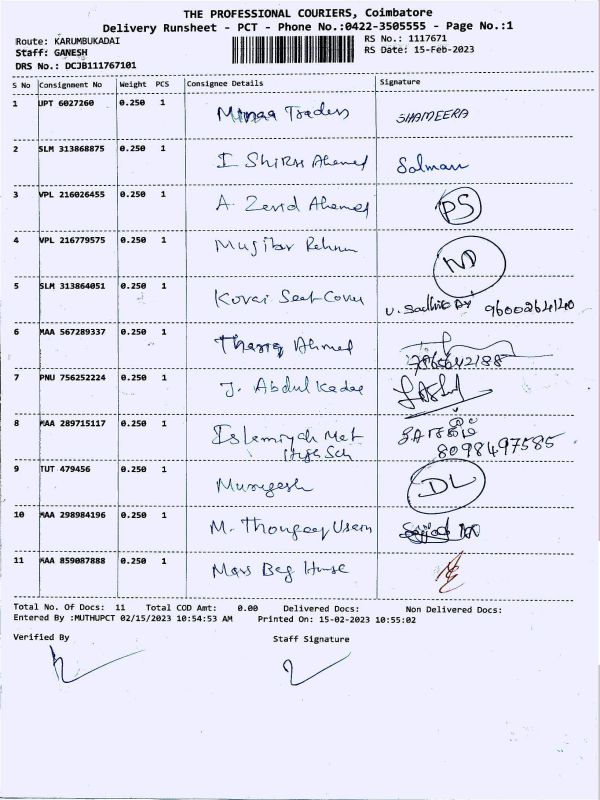 THE PROFESSIONAL COURIERS, Coimbatore
Delivery Runsheet - PCT - Phone No.:0422-3505555 - Page No.:1
Route: KARUMBUKADAI
Staff: GANESH
DRS No.: DCJB111767101
RS No.: 1117671
RS Date: 15-Feb-2023
S No Consignment No Weight PCS Consignee Details Signature
1 UPT 6027260 0.250 1 Traders SHAMEERA
2 SLM 313868875 0.250 1 I Ahamed Salman
3 VPL 216026455 0.250 1 A. Zavid Ahamed PS
4 VPL 216779575 0.250 1 Mujibur Rehman
5 SLM 313864051 0.250 1 Kovai Seat Cover 9600264140
6 MAA 567289337 0.250 1 Thariq Ahmed
7865642188
7 PNU 756252224 0.250 1 J. Abdul Kadar
8 MAA 289715117 0.250 1 Islamiyah Mat
High Sch 8098497585
9 TUT 479456 0.250 1 Murugesh DL
10 MAA 298984196 0.250 1 M.
11 MAA 859087888 0.250 1 Mars Beg House
Total No. Of Docs: 11 Total COD Amt: 0.00 Delivered Docs: Non Delivered Docs:
Entered By :MUTHUPCT 02/15/2023 10:54:53 AM Printed On: 15-02-2023 10:55:02
Verified By Staff Signature